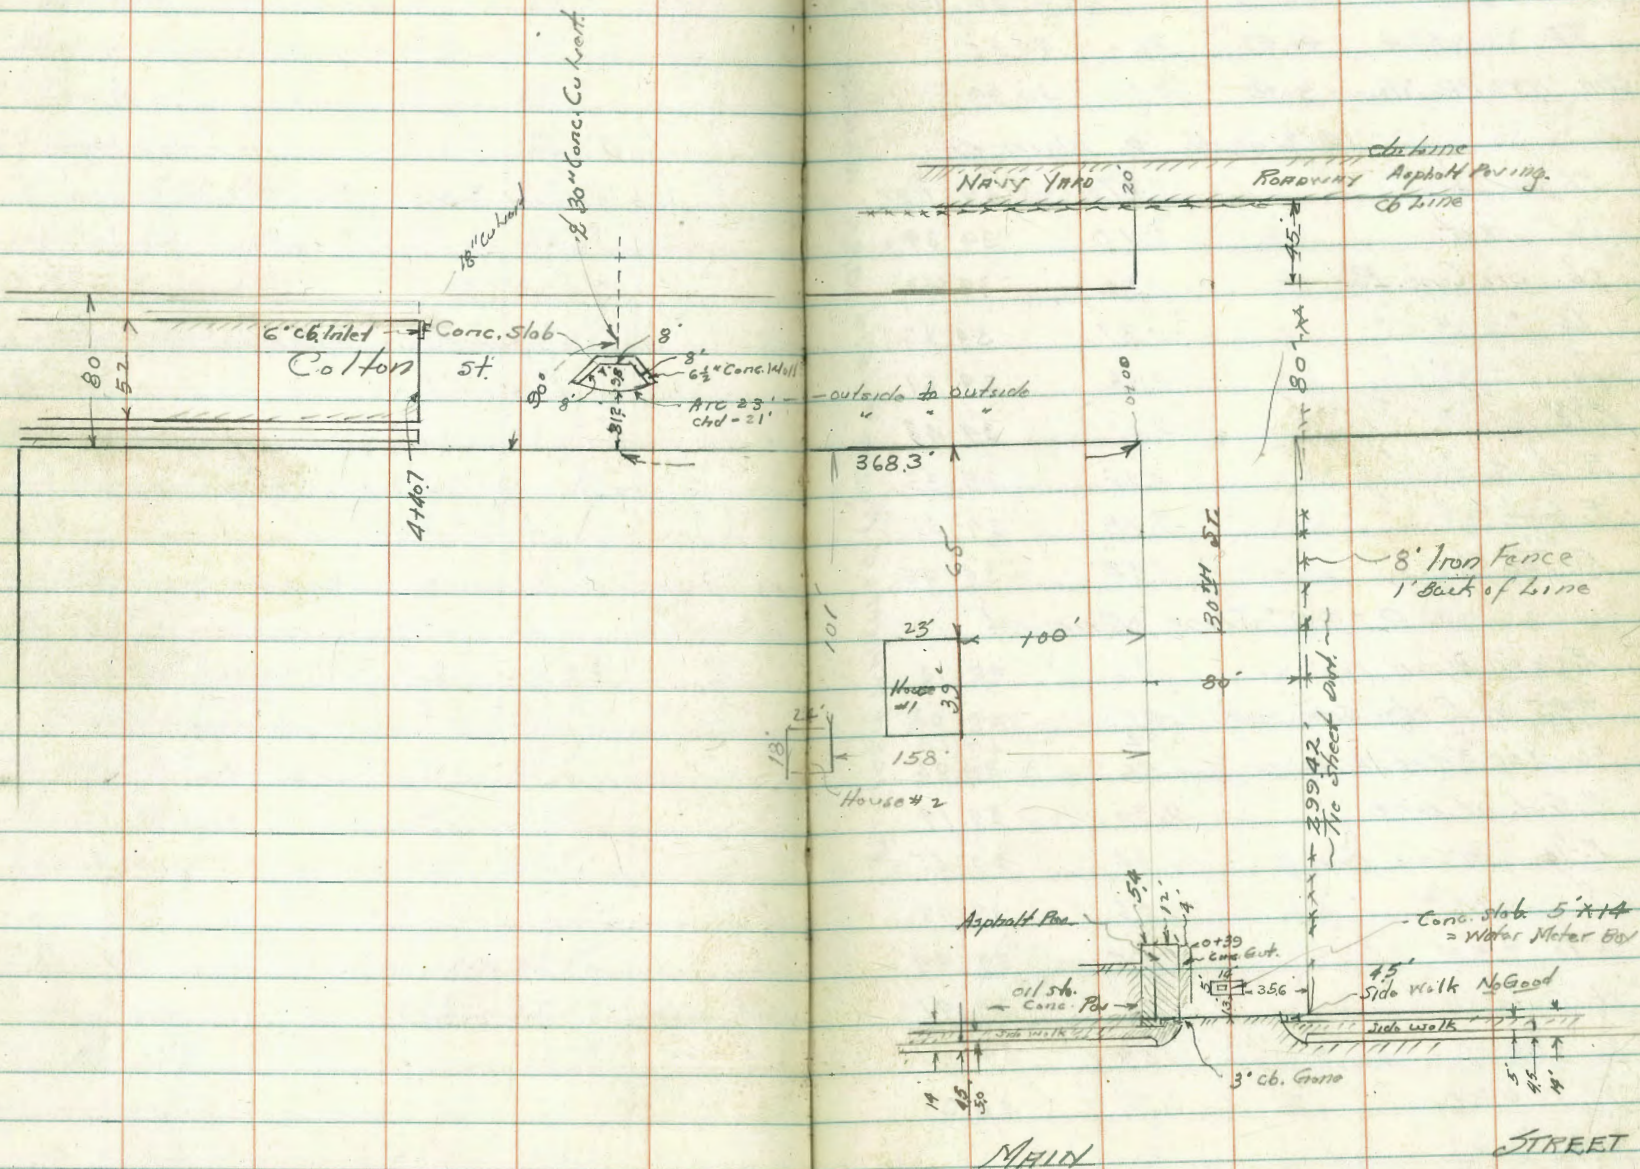 2' 30" Conc. Culvert
18" Culvert
80
52
6" cb. Inlet
Colton St.
4+40.7
Conc. Slab
8'
8'
6½" Conc. Wall
8'
90°
Arc 23' - outside to outside
Chd - 21' " " "
368.3'
NAVY YARD ROADWAY
cb Line
Asphalt Paving.
cb Line
20'
45'
80'
0+00
65'
101'
30TH ST.
8' Iron Fence
1' Back of Line
23'
100'
House
#1
39'
80'
24'
18'
158'
House # 2
299.42'
~ No Sheet Dist. ~
Asphalt Pav.
5.4
12'
4'
0+39
Conc. Gut.
Conc. Slab 5' x 14
= Water Meter Box
oil sta.
Conc. Pav
5'
14'
13'
35.6
4.5'
Side Walk No Good
Side Walk
Side Walk
3" cb. Gone
14
4.5
5.0
5'
4.5
14'
MAIN STREET